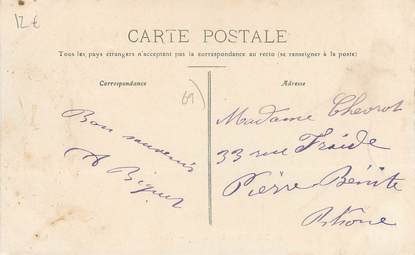 12 €
CARTE POSTALE
Tous les pays étrangers n'acceptent pas la correspondance au recto (se renseigner à la poste)
Correspondance
Bon souvenir
Adresse
69)
Madame Chevrot
33 rue Froide
Pierre Bénite
Rhône